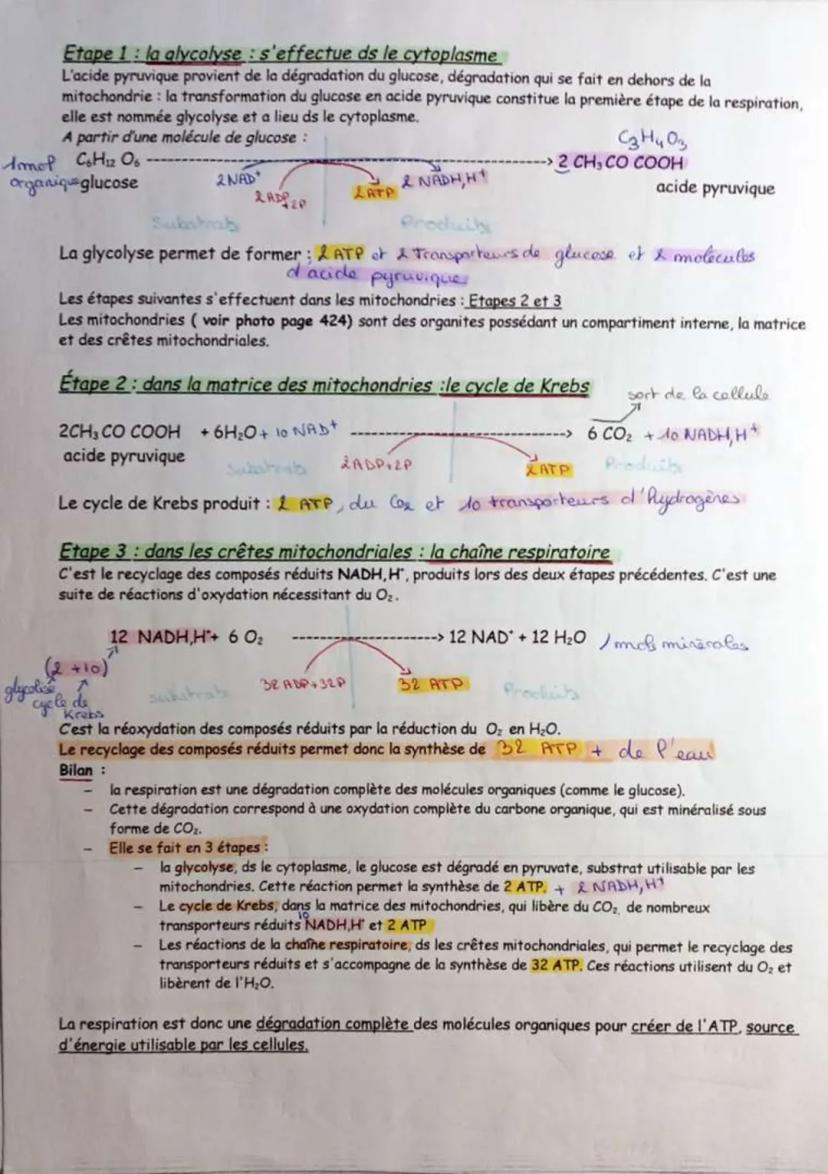 Etape 1 : la glycolyse : s'effectue ds le cytoplasme
L'acide pyruvique provient de la dégradation du glucose, dégradation qui se fait en dehors de la
mitochondrie : la transformation du glucose en acide pyruvique constitue la première étape de la respiration,
elle est nommée glycolyse et a lieu ds le cytoplasme.
A partir d'une molécule de glucose :
C3H4O3
1 mol C6H12 O6 -----------------------------------------------------> 2 CH3 CO COOH
organique glucose 2 NAD+ 2 ADP+2P 2 ATP 2 NADH,H+ acide pyruvique
Substrats Produits
La glycolyse permet de former : 2 ATP et 2 Transporteurs de glucose et 2 molécules
d'acide pyruvique
Les étapes suivantes s'effectuent dans les mitochondries : Etapes 2 et 3
Les mitochondries ( voir photo page 424) sont des organites possédant un compartiment interne, la matrice
et des crêtes mitochondriales.
Étape 2 : dans la matrice des mitochondries :le cycle de Krebs
sort de la cellule
2CH3 CO COOH + 6H2O + 10 NAD+ -----------------------------> 6 CO2 + 10 NADH,H+
acide pyruvique
Substrats 2ADP+2P 2 ATP Produits
Le cycle de Krebs produit : 2 ATP, du CO2 et 10 transporteurs d'Hydrogènes
Etape 3 : dans les crêtes mitochondriales : la chaîne respiratoire
C'est le recyclage des composés réduits NADH,H+, produits lors des deux étapes précédentes. C'est une
suite de réactions d'oxydation nécessitant du O2.
12 NADH,H+ + 6 O2 --------------------> 12 NAD+ + 12 H2O / mols minérales
(2 +10)
glycolise
cycle de
Krebs
substrats 32 ADP+32P 32 ATP Produits
C'est la réoxydation des composés réduits par la réduction du O2 en H2O.
Le recyclage des composés réduits permet donc la synthèse de 32 ATP + de l'eau
Bilan :
– la respiration est une dégradation complète des molécules organiques (comme le glucose).
– Cette dégradation correspond à une oxydation complète du carbone organique, qui est minéralisé sous
forme de CO2.
– Elle se fait en 3 étapes :
– la glycolyse, ds le cytoplasme, le glucose est dégradé en pyruvate, substrat utilisable par les
mitochondries. Cette réaction permet la synthèse de 2 ATP. + 2 NADH,H+
– Le cycle de Krebs, dans la matrice des mitochondries, qui libère du CO2, de nombreux
transporteurs réduits 10 NADH,H+ et 2 ATP
– Les réactions de la chaîne respiratoire, ds les crêtes mitochondriales, qui permet le recyclage des
transporteurs réduits et s'accompagne de la synthèse de 32 ATP. Ces réactions utilisent du O2 et
libèrent de l'H2O.
La respiration est donc une dégradation complète des molécules organiques pour créer de l'ATP, source
d'énergie utilisable par les cellules.